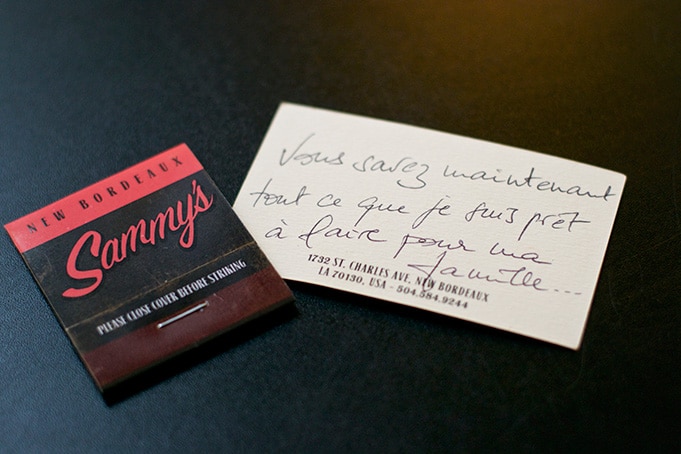 NEW BORDEAUX
Sammy's
PLEASE CLOSE COVER BEFORE STRIKING
Vous savez maintenant
tout ce que je suis prêt
à faire pour ma
famille...
1732 ST. CHARLES AVE, NEW BORDEAUX
LA 70130, USA - 504.584.9244